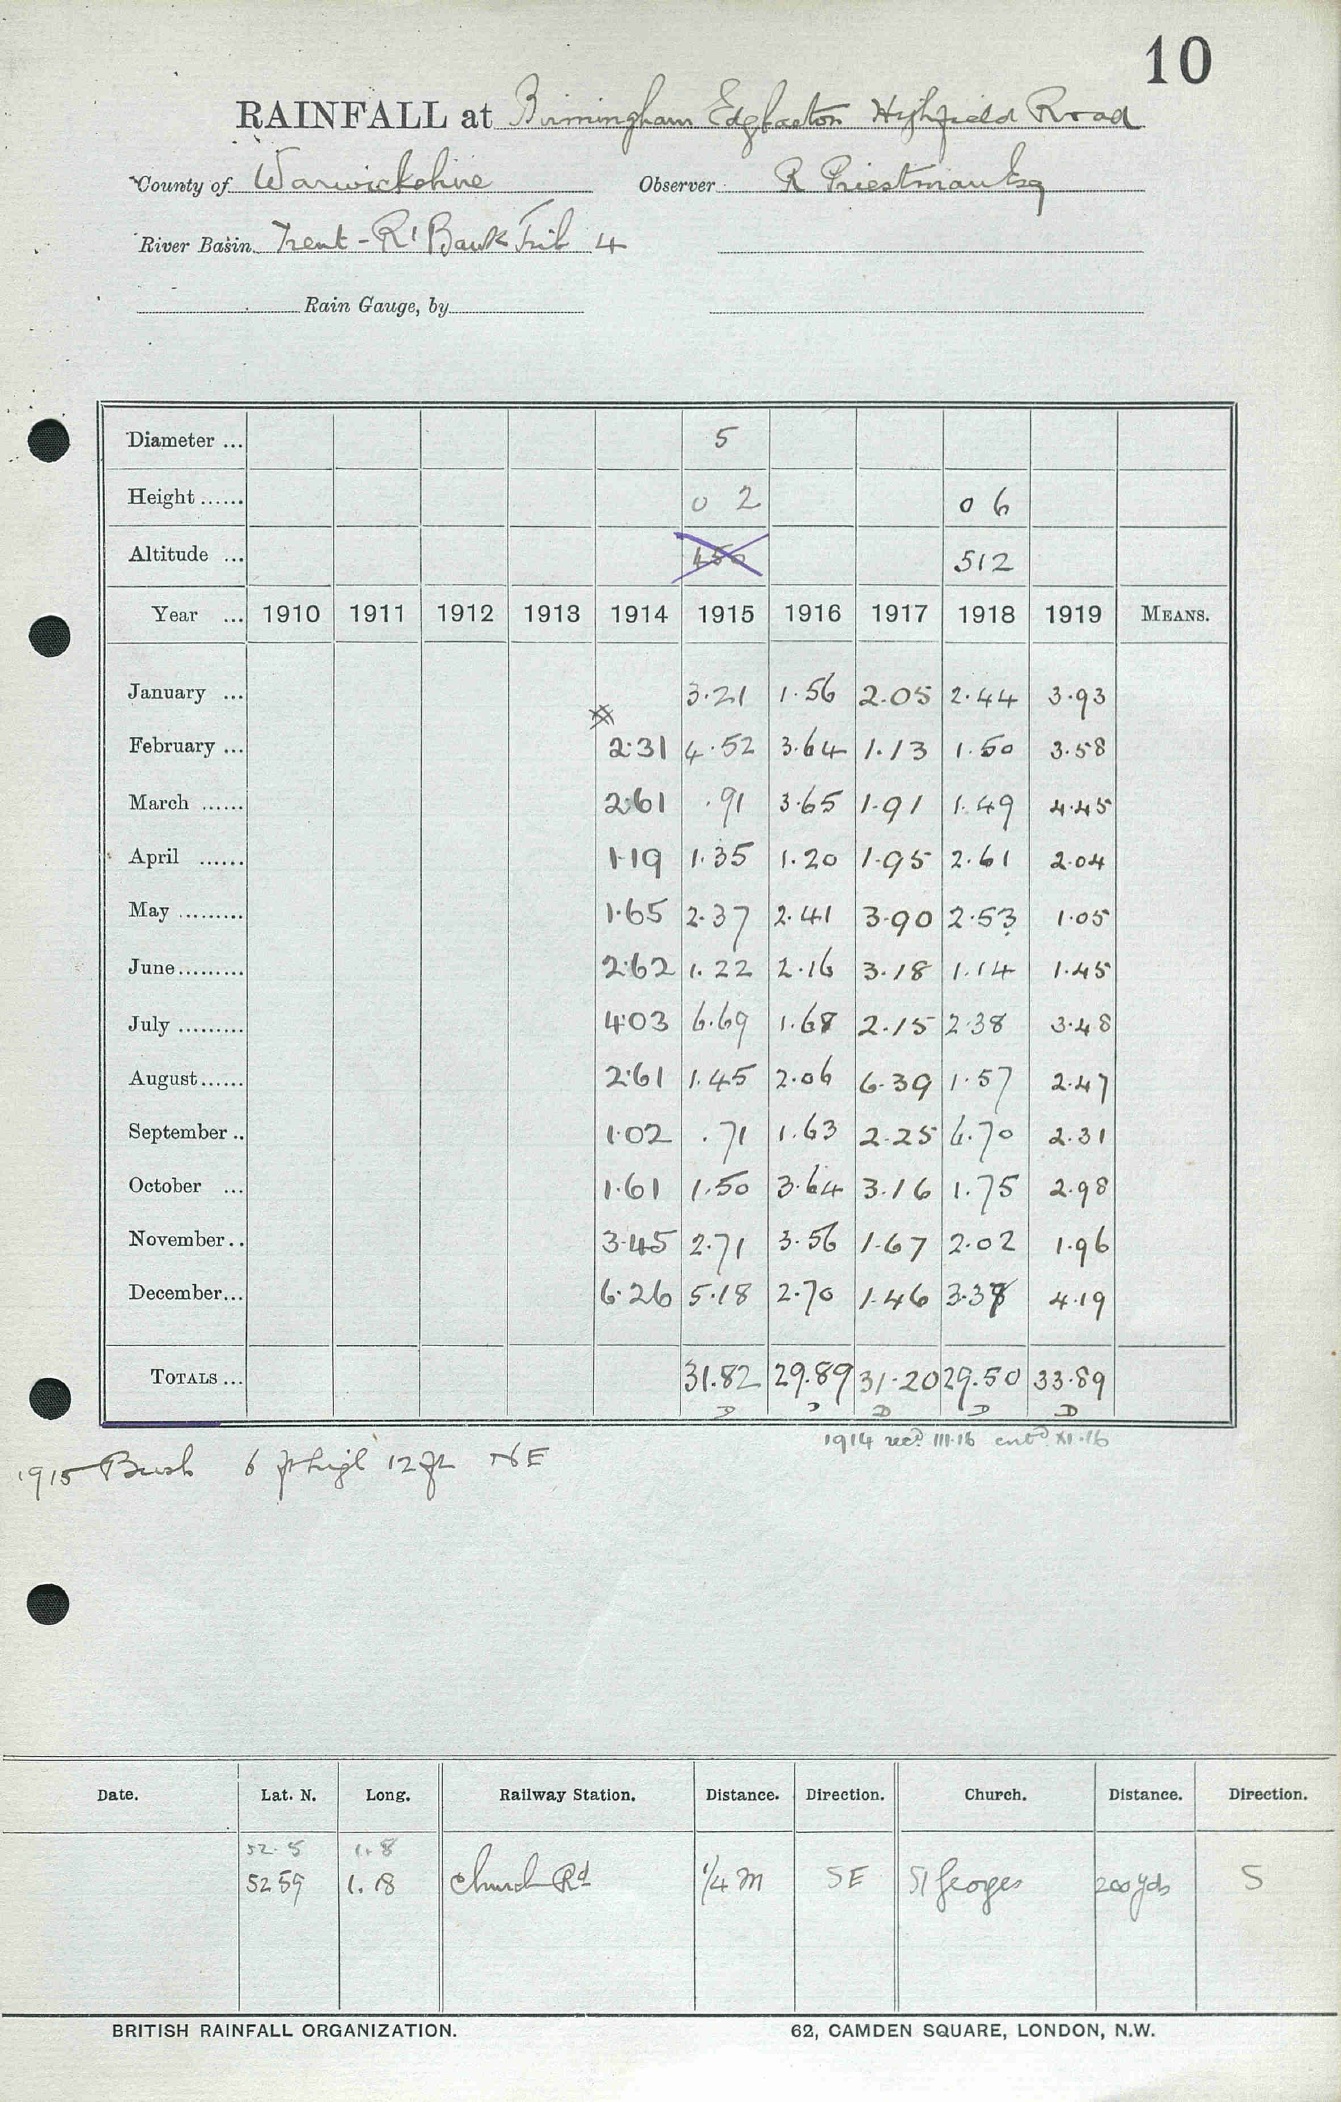 10
RAINFALL at Birmingham Edgbaston Highfield Road
County of Warwickshire Observer R Priestman Esq
River Basin Trent - Rt Bank Trib 4
Rain Gauge, by
Diameter ... 5
Height ...... 0 2 0 6
Altitude ... 450 512
Year ... 1910 1911 1912 1913 1914 1915 1916 1917 1918 1919 MEANS.
January ... 3.21 1.56 2.05 2.44 3.93
February ... 2.31 4.52 3.64 1.13 1.50 3.58
March ...... 2.61 .91 3.65 1.91 1.49 4.45
April ...... 1.19 1.35 1.20 1.95 2.61 2.04
May ......... 1.65 2.37 2.41 3.90 2.53 1.05
June......... 2.62 1.22 2.16 3.18 1.14 1.45
July ......... 4.03 6.69 1.68 2.15 2.38 3.48
August...... 2.61 1.45 2.06 6.39 1.57 2.47
September .. 1.02 .71 1.63 2.25 6.70 2.31
October ... 1.61 1.50 3.64 3.16 1.75 2.98
November.. 3.45 2.71 3.56 1.67 2.02 1.96
December... 6.26 5.18 2.70 1.46 3.38 4.19
TOTALS ... 31.82 29.89 31.20 29.50 33.89
D D D D D
1914 recd. III.16 entd. XI.16
1915 Bush 6 ft high 12 ft NE
Date. Lat. N. Long. Railway Station. Distance. Direction. Church. Distance. Direction.
52.5 1.8
52 59 1.18 Church Rd 1/4 m SE St Georges 200 yds S
BRITISH RAINFALL ORGANIZATION. 62, CAMDEN SQUARE, LONDON, N.W.